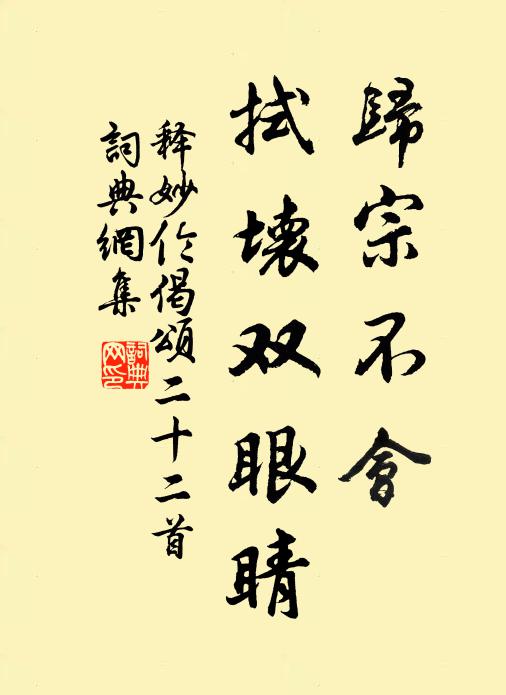 歸宗不會
拭壞双眼睛
释妙伦偈頌二十二首
詞典網集
詞典
网印